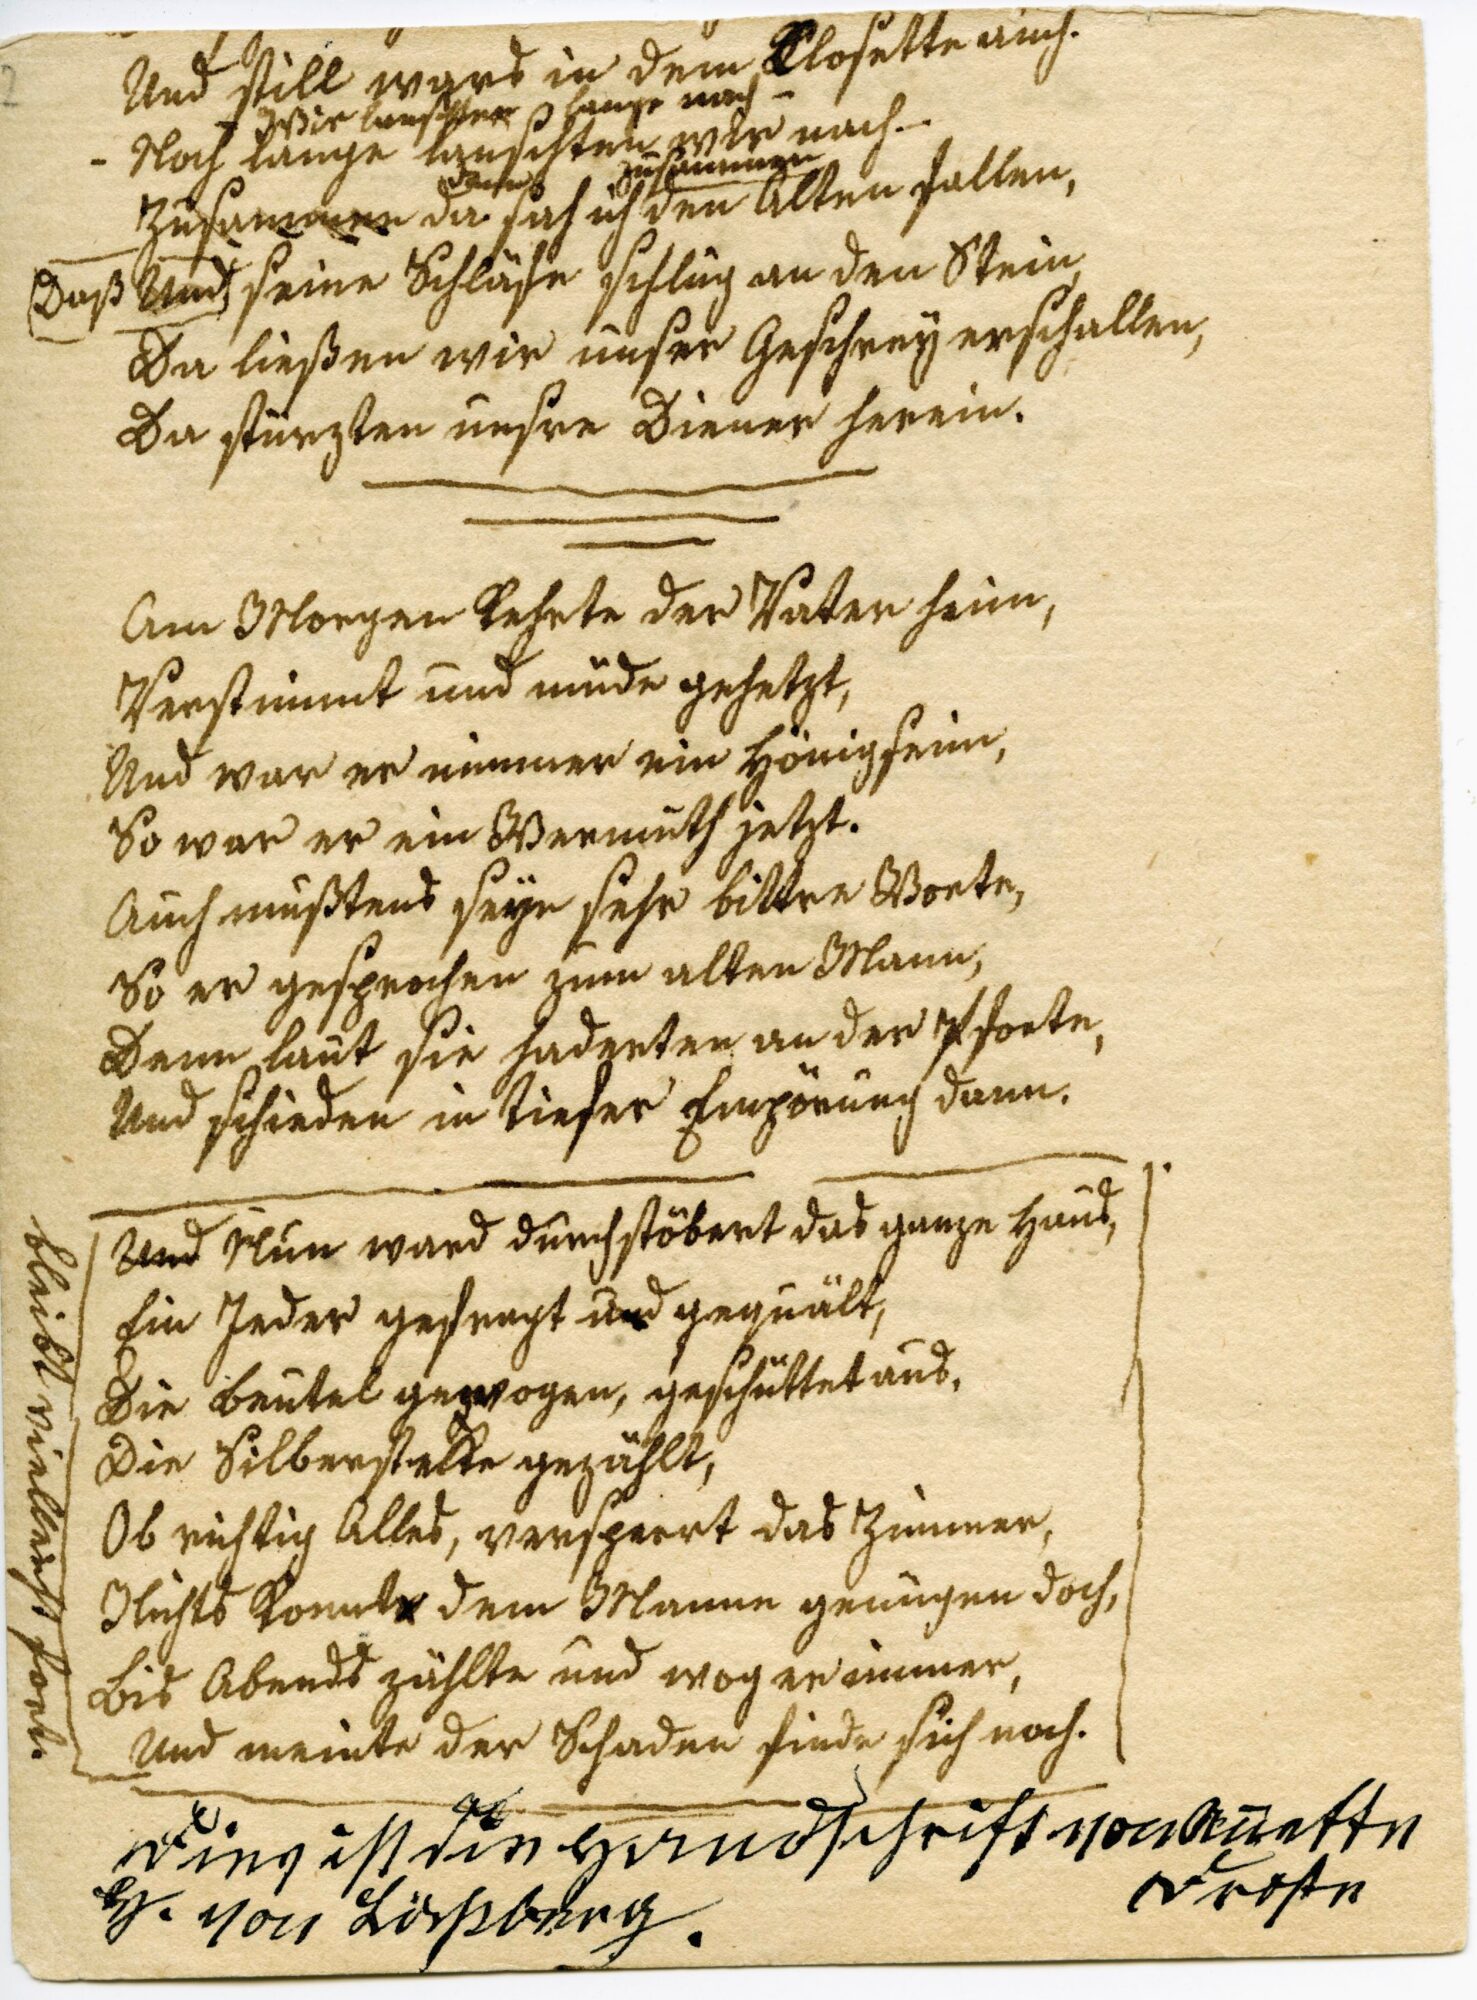 Und still wards in dem Klosette auch.
Wir lauschten lange nach –
– Noch lange lauschten wir nach –
dann zusammen
Zusammen da sah ich den Alten fallen,
Daß Und seine Schläfe schlug an den Stein,
Da ließen wir unser Geschrey erschallen,
Da stürzten unsre Diener herein.
Am Morgen kehrte der Vater heim,
Verstimmt und müde gehetzt,
Und war er nimmer ein Hönigseim,
So war er ein Wermuth jetzt.
Auch mußtens seyn sehr bittre Worte,
So er gesprochen zum alten Mann,
Denn laut sie haderten an der Pforte,
Und schieden in tiefer Empörung dann.
Und Nun ward durchstöbert das ganze Haus,
Ein Jeder gefragt und gequält,
Die Beutel gewogen, geschüttet aus,
Die Silberstücke gezählt,
Ob richtig Alles, versperrt das Zimmer,
Nichts konnte dem Manne genügen doch,
Bis Abends zählte und wog er immer,
Und meinte der Schaden finde sich noch.
bleibt vielleicht fort.
Dies ist die Handschrift von Annette
Droste
H. von Laßberg.